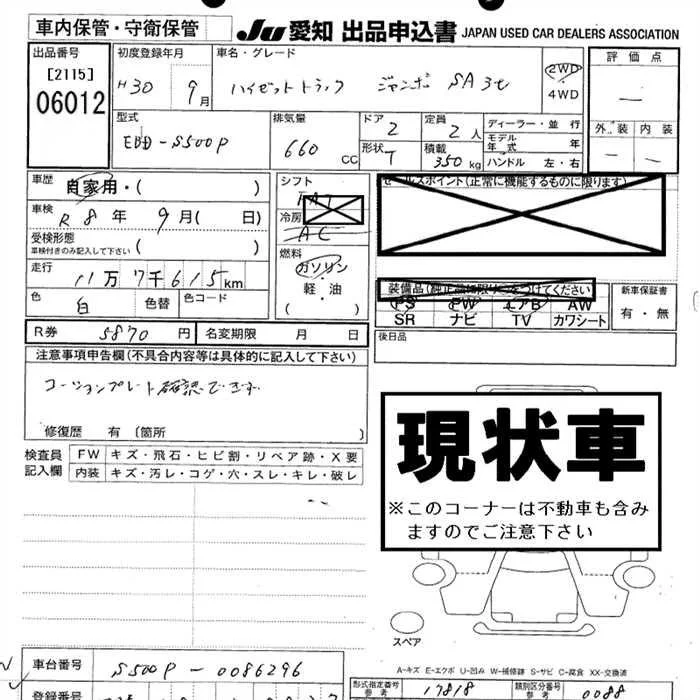 車内保管・守衛保管
JU 愛知 出品申込書 JAPAN USED CAR DEALERS ASSOCIATION
出品番号 [2115] 06012
初度登録年月 H30 9月
車名・グレード ハイゼットトラック ジャンボ SA3t
2WD・4WD
評価点 —
外装 内装
— —
型式 EBD-S500P
排気量 660 CC
ドア 2
定員 2人
形状 T
積載 350kg
ディーラー・並行
モデル年式 年
ハンドル 左・右
車歴 自家用・( )
車検 R8年 9月( 日)
受検形態 ( )
車検付きのみ記入して下さい
走行 11万7千615km
色 白 色替 色コード
シフト FAT
冷房 AC
燃料 ガソリン・軽・油
( )
セールスポイント(正常に機能するものに限ります)
装備品(純正品に限り○をつけてください)
PS PW エアB AW
SR ナビ TV カワシート
新車保証書 有・無
R券 5870円 名変期限 月 日
後日品
注意事項申告欄(不具合内容等は具体的に記入して下さい)
コーションプレート確認できず
修復歴 有 〔箇所 〕
検査員記入欄
FW キズ・飛石・ヒビ割・リペア跡・X要
内装 キズ・汚レ・コゲ・穴・スレ・キレ・破レ
現状車
※このコーナーは不動車も含み
ますのでご注意下さい
スペア
A-キズ E-エクボ U-凹み W-補修跡 S-サビ C-腐食 XX-交換済
車台番号 S500P-0086296
型式指定番号 参考 17818
類別区分番号 参考 0088
登録番号